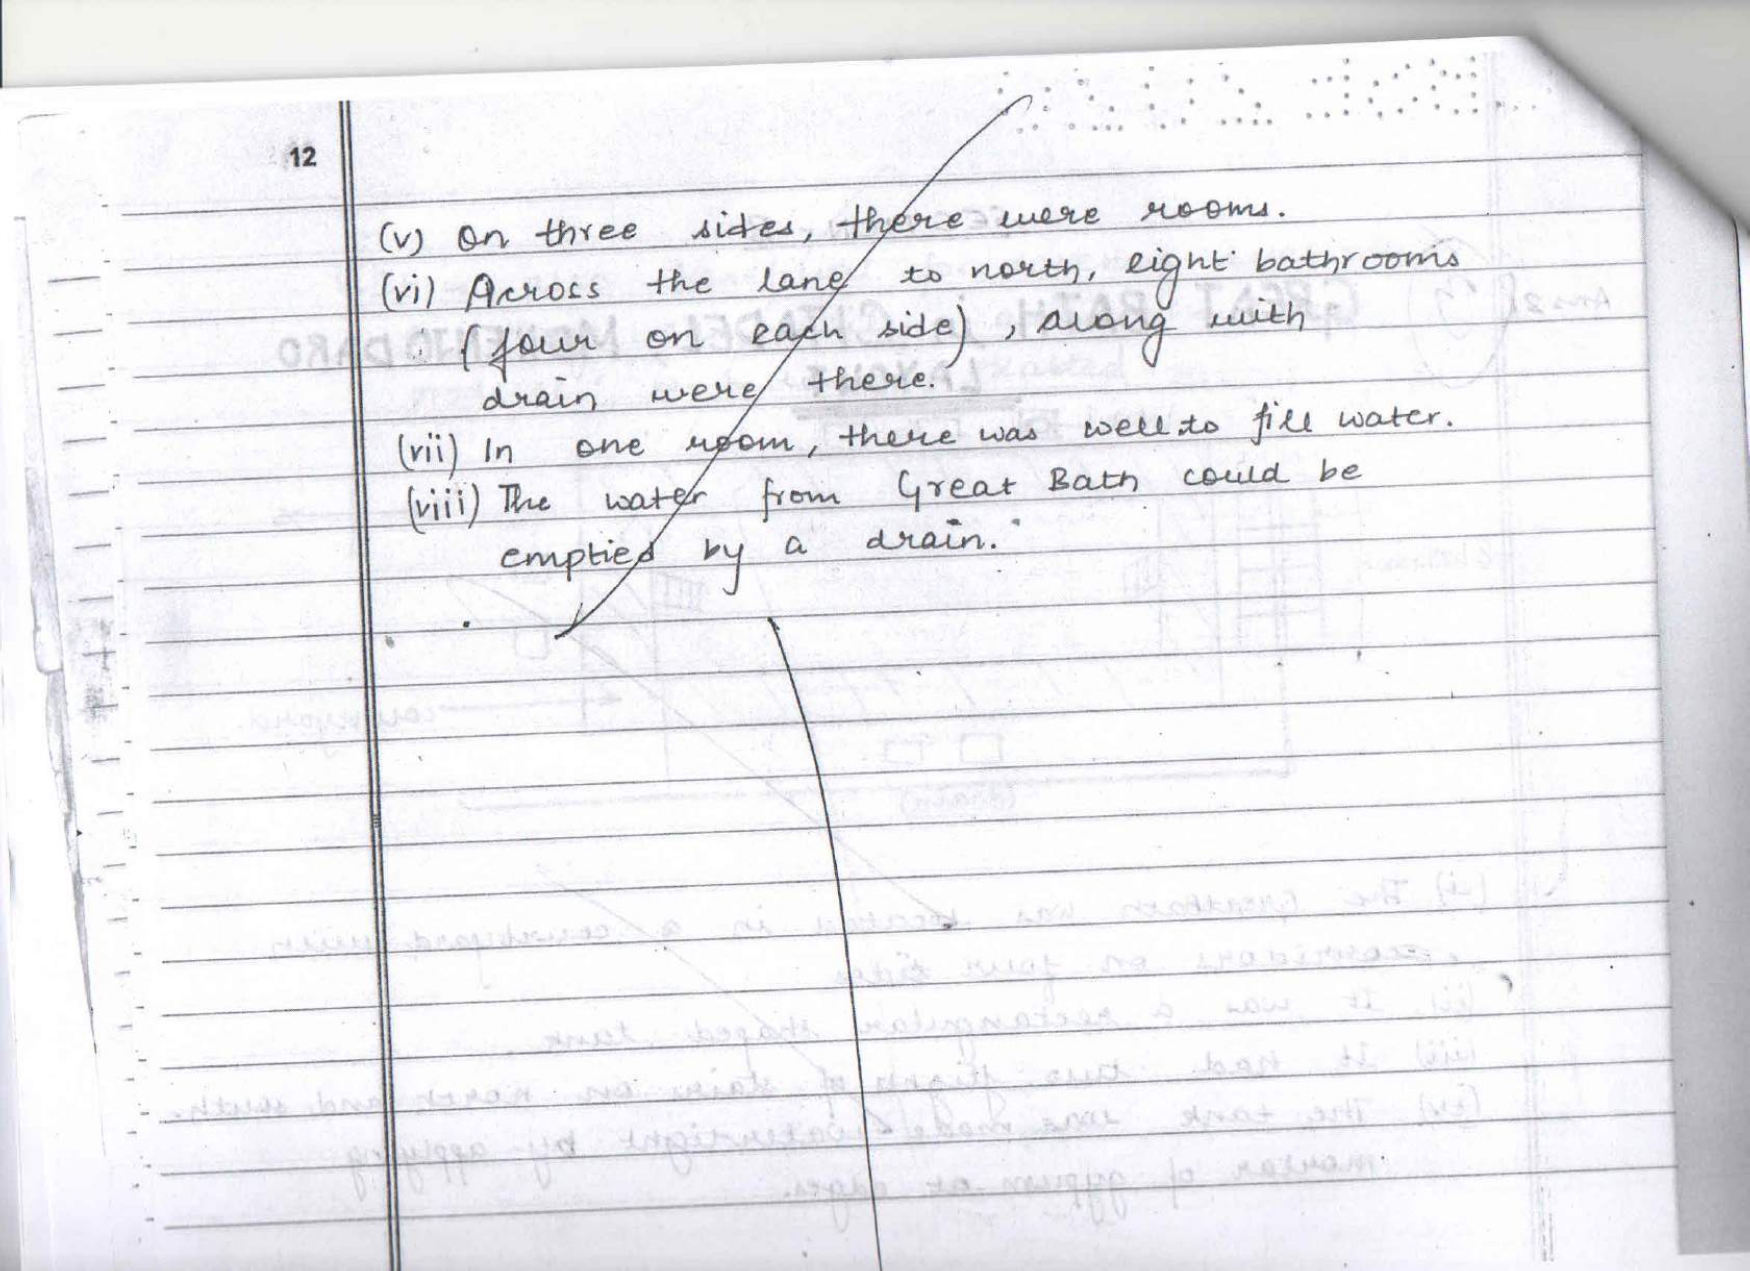 12
(v) On three sides, there were rooms.
(vi) Across the lane to north, eight bathrooms
(four on each side), along with
drain were there.
(vii) In one room, there was well to fill water.
(viii) The water from Great Bath could be
emptied by a drain.